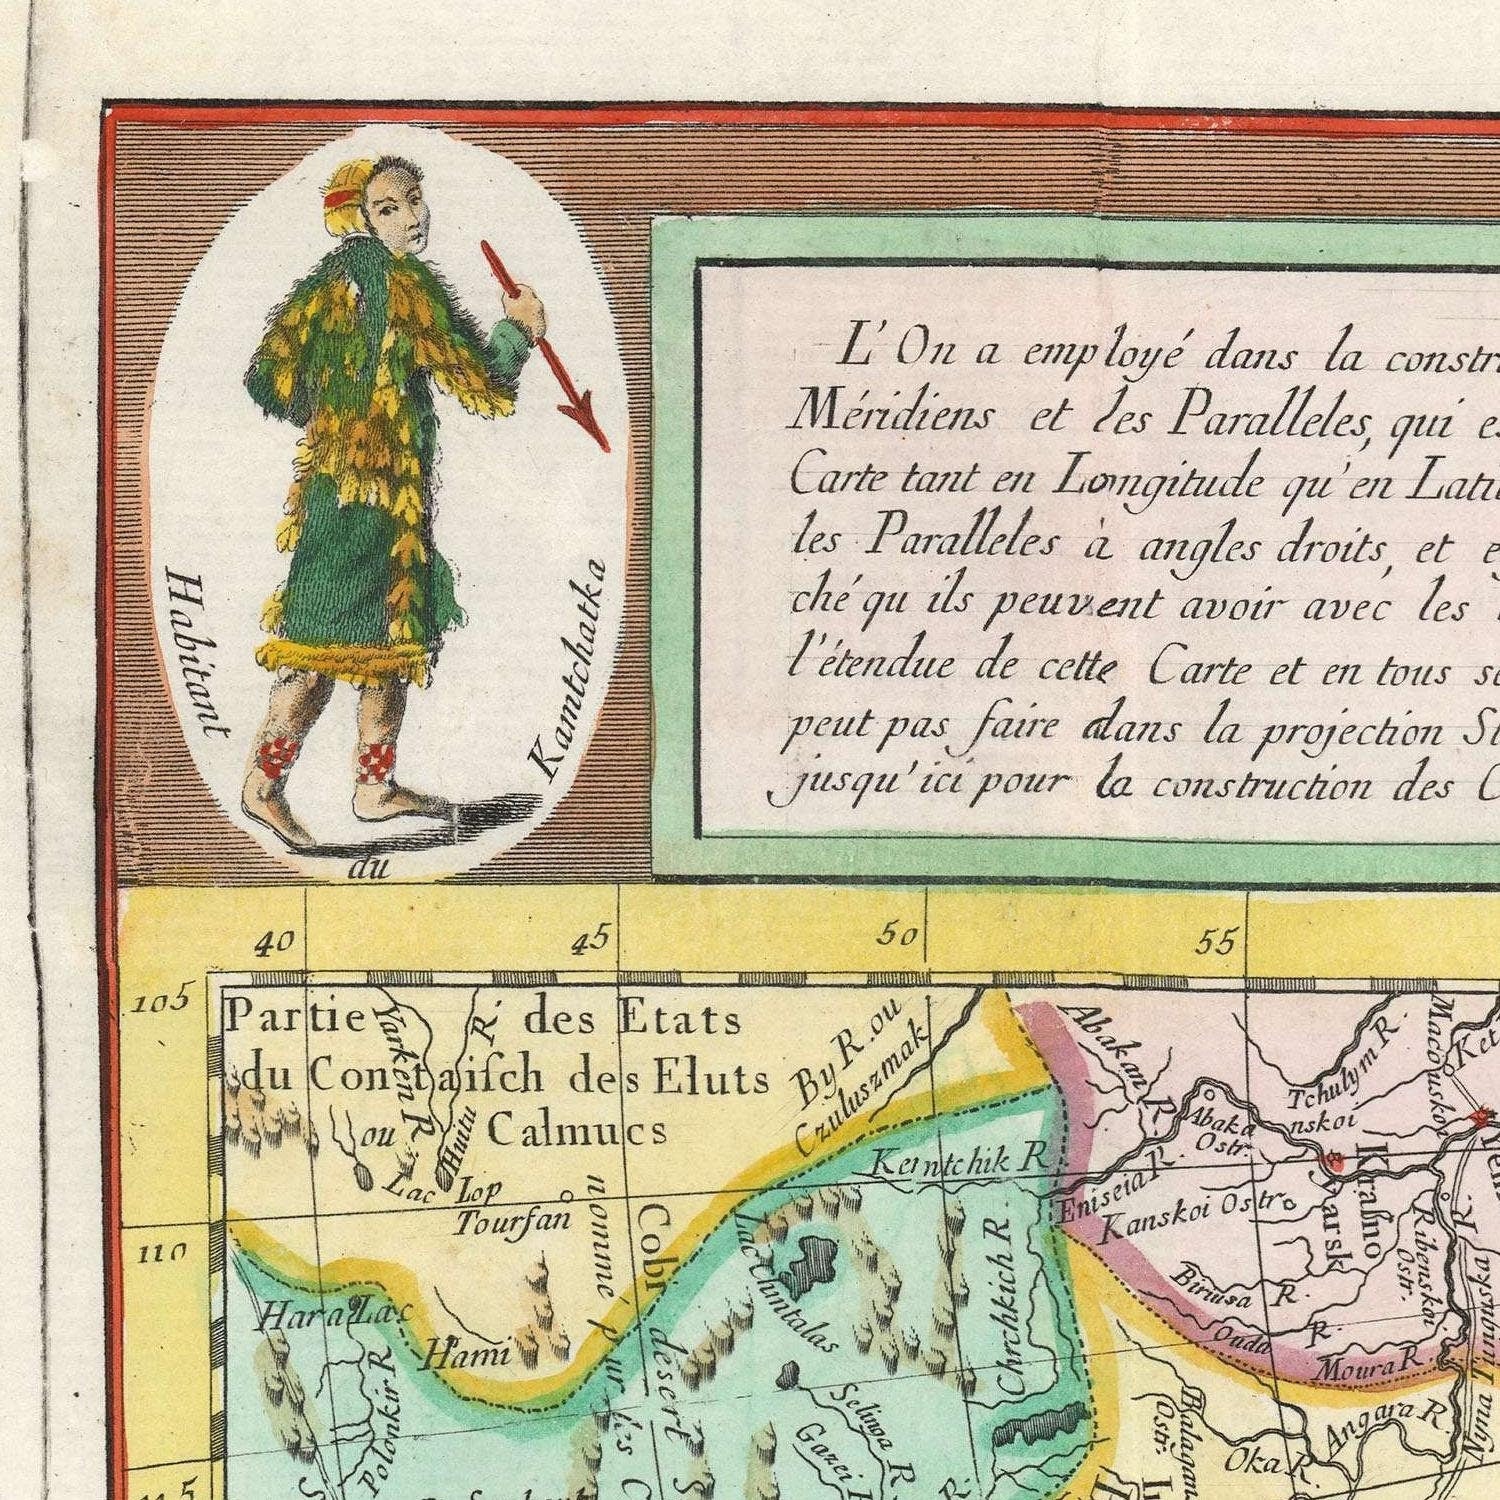 Habitant
du
Kamtchatka
L'On a employé dans la
Méridiens et les Paralleles, qui
Carte tant en Longitude qu'en
les Paralleles à angles droits, et
ché qu ils peuvent avoir avec les
l'étendue de cette Carte et en tous
peut pas faire dans la projection
jusqu'ici pour la construction des
40 45 50 55
105
110
115
Partie des Etats
du Contaisch des Eluts
ou Calmucs
Yarken R.
Huitu R.
Lac Lop
Tourfan
By R. ou
Czuluszmak
Kemtchik R.
Abakan R.
Abaka
Ostr.
Tchulym R.
Macouskoi
Ket
nskoi
Eniseia R.
Kanskoi Ostro
Krasno
yarsk
Ribenskoi
Ostr.
Biriusa R.
Ouda R.
Moura R.
Angara R.
Oka R.
Balagan
Ostr.
Nyna Tunguska R.
Hara Lac
Hami
Polonkir R.
Cobi desert
nommé pur les
Lac Chintalas
Chrchkich R.
Selinga R.
Gazei